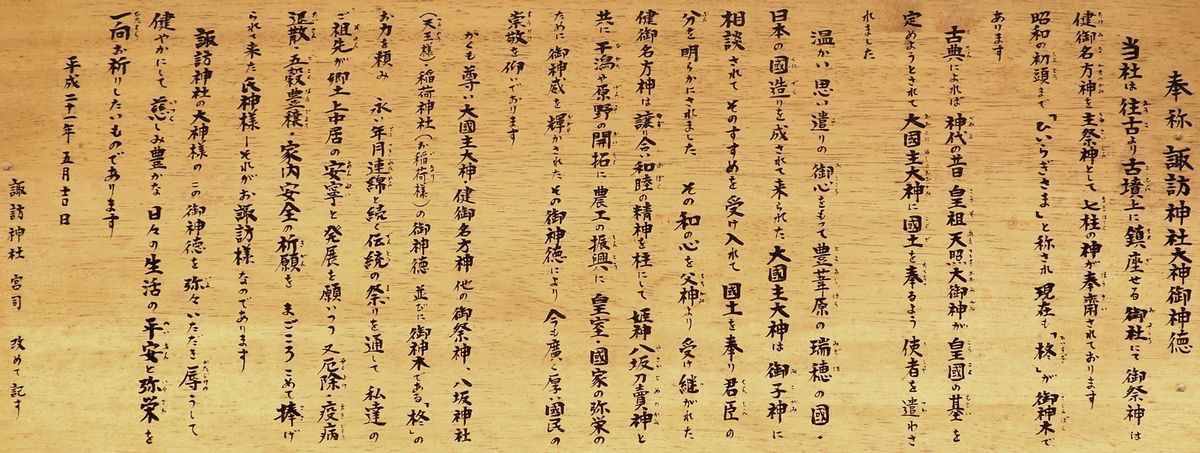 奉称 諏訪神社大神御神徳
当社は往古より古墳上に鎮座せる御社にて御祭神は
健御名方神を主祭神として七柱の神が奉斎されております
昭和の初頭まで「ひいらぎさま」と称され 現在も「柊」が御神木で
あります
古典によれば 神代の昔 皇祖 天照大御神が皇國の基を
定めようとされて 大國主大神に國土を奉るよう 使者を遣わさ
れました
温かい 思い遣りの 御心をもって 豊葦原の 瑞穂の國・
日本の國造りを成されて来られた 大國主大神は 御子神に
相談されて そのすすめを受け入れて 國土を奉り 君臣の
分を明らかにされました その和の心を 父神より 受け継がれた
健御名方神は 譲り合い和睦の精神を柱にして 姫神八坂刀賣神と
共に 干潟や原野の開拓に 農工の振興に 皇室・國家の弥栄の
ために 御神威を輝かされた その御神徳により 今も廣く厚い國民の
崇敬を仰いであります
かくも尊い 大國主大神 健御名方神 他の御祭神、八坂神社
(天王様)・稲荷神社(お稲荷様)の御神徳 並びに 御神木である「柊」の
お力を頼み 永い年月連綿と続く伝統の祭りを通して 私達の
ご祖先が郷土上中居の安寧と発展を願いつつ 又厄除・疫病
退散・五穀豊穣・家内安全の祈願を まごころこめて捧げ
られて来た氏神様―それがお諏訪様なのであります
諏訪神社の大神様の この御神徳を 弥々いただき 辱うして
健やかにして 慈しみ豊かな 日々の生活の 平安と弥栄を
一向お祈りしたいものであります
平成二十一年 五月 吉日
諏訪神社 宮司 攻めて記す